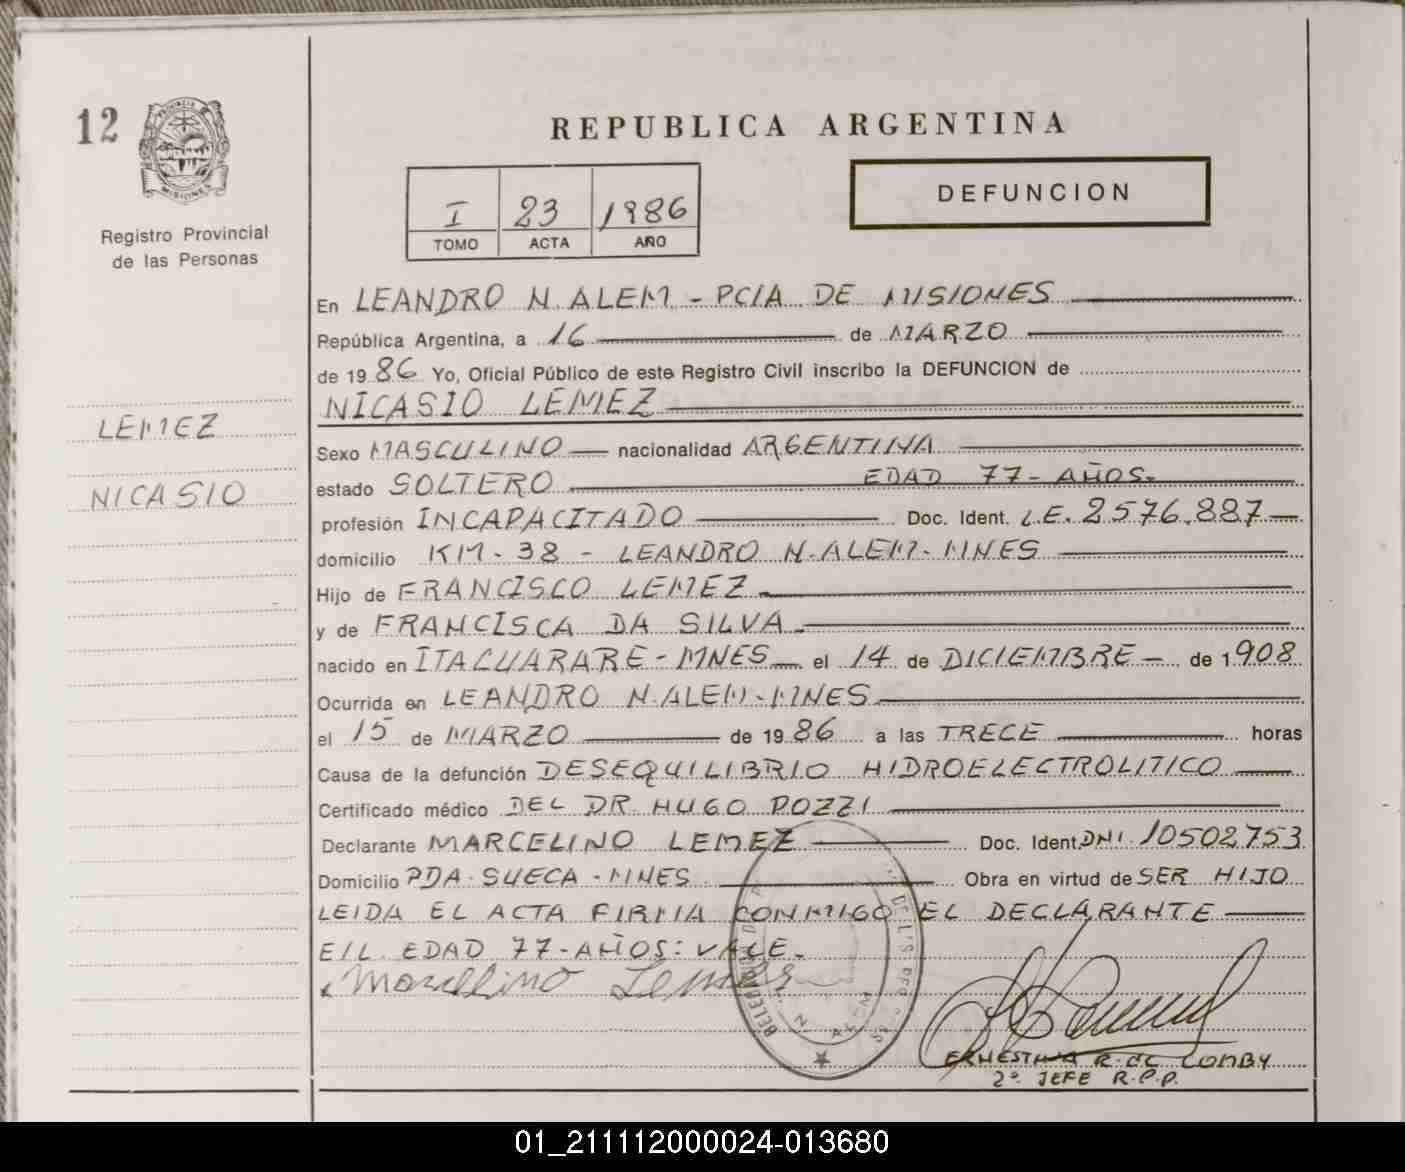 12
PROVINCIA DE
MISIONES
Registro Provincial
de las Personas
LEMEZ
NICASIO
REPUBLICA ARGENTINA
I 23 1986
TOMO ACTA AÑO
DEFUNCION
En LEANDRO N. ALEM - PCIA DE MISIONES
República Argentina, a 16 de MARZO
de 1986 Yo, Oficial Público de este Registro Civil inscribo la DEFUNCION de
NICASIO LEMEZ
Sexo MASCULINO nacionalidad ARGENTINA
estado SOLTERO EDAD 77-AÑOS.
profesión INCAPACITADO Doc. Ident. L.E. 2576.887
domicilio KM-38 - LEANDRO N-ALEM-MNES
Hijo de FRANCISCO LEMEZ
y de FRANCISCA DA SILVA
nacido en ITACUARARE-MNES el 14 de DICIEMBRE de 1908
Ocurrida en LEANDRO N.ALEM-MNES
el 15 de MARZO de 1986 a las TRECE horas
Causa de la defunción DESEQUILIBRIO HIDROELECTROLITICO
Certificado médico DEL DR. HUGO POZZI
Declarante MARCELINO LEMEZ Doc. Ident. DNI. 10502753
Domicilio PDA-SUECA-MNES Obra en virtud de SER HIJO
LEIDA EL ACTA FIRMA CONMIGO EL DECLARANTE
E/L. EDAD 77-AÑOS: VALE.
Marcelino Lemez
N. ALEM
ERNESTINA R. de COMBY
2º JEFE R.P.P.
01_211112000024-013680